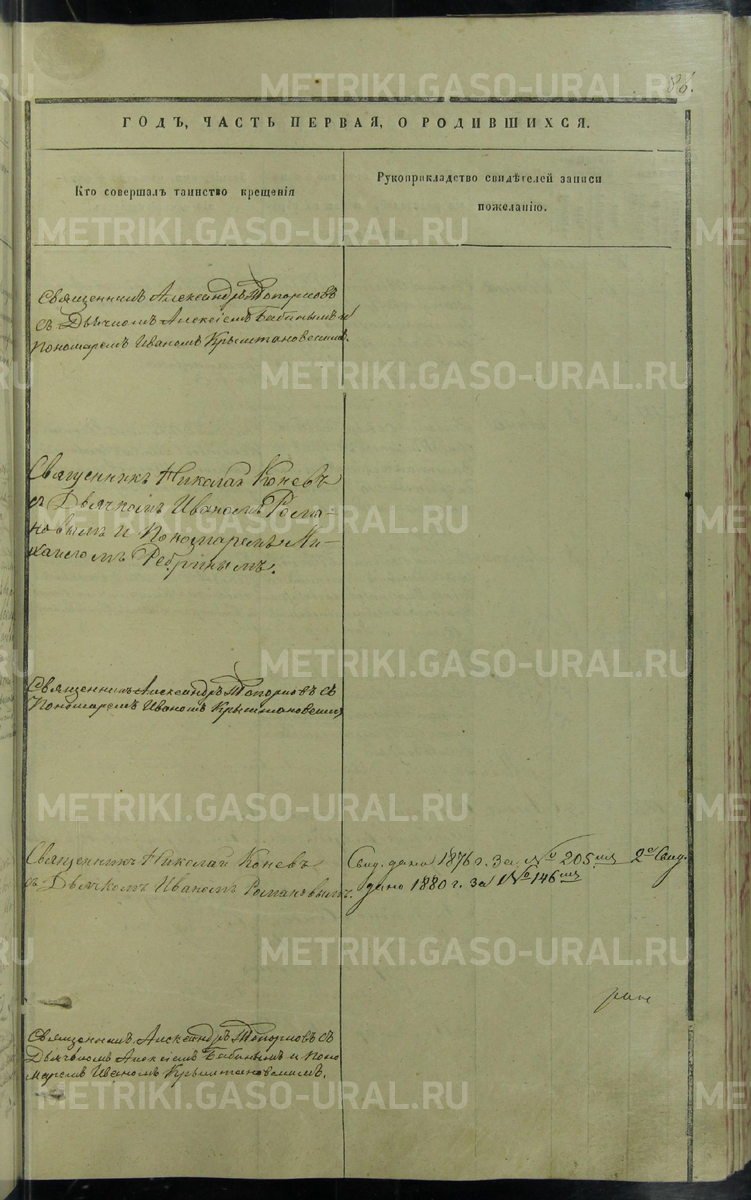 86.
ГОДЪ, ЧАСТЬ ПЕРВАЯ, О РОДИВШИХСЯ.
Кто совершалъ таинство крещенія
Рукоприкладство свидѣтелей записи
пожеланію.
Священникъ Александръ Топорковъ
съ Дьячкомъ Алексіемъ Бабинымъ и
Пономаремъ Иваномъ
Священникъ Николай Коневъ
съ Дьячкомъ Иваномъ Рома-
новымъ и Пономаремъ Ми-
хаиломъ Ребринымъ.
Священникъ Александръ Топорковъ съ
Пономаремъ Иваномъ
Священникъ Николай Коневъ
съ Дьячкомъ Иваномъ Романовымъ.
Свид. дано 1876 г. За № 205мъ 2е Свид.
дано 1880 г. За № 146мъ
Священникъ Александръ Топорковъ съ
Дьячкомъ Алексіемъ Бабинымъ и Поно
маремъ Иваномъ
METRIKI.GASO-URAL.RU